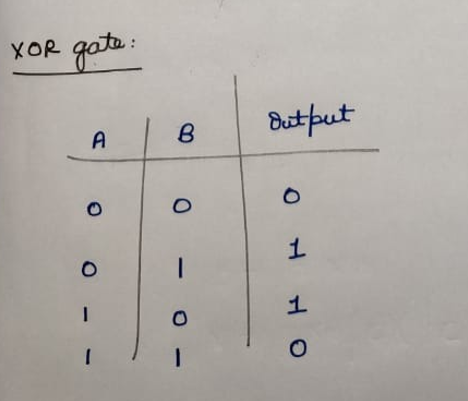 XOR gate:
A B Output
0 0 0
0 1 1
1 0 1
1 1 0